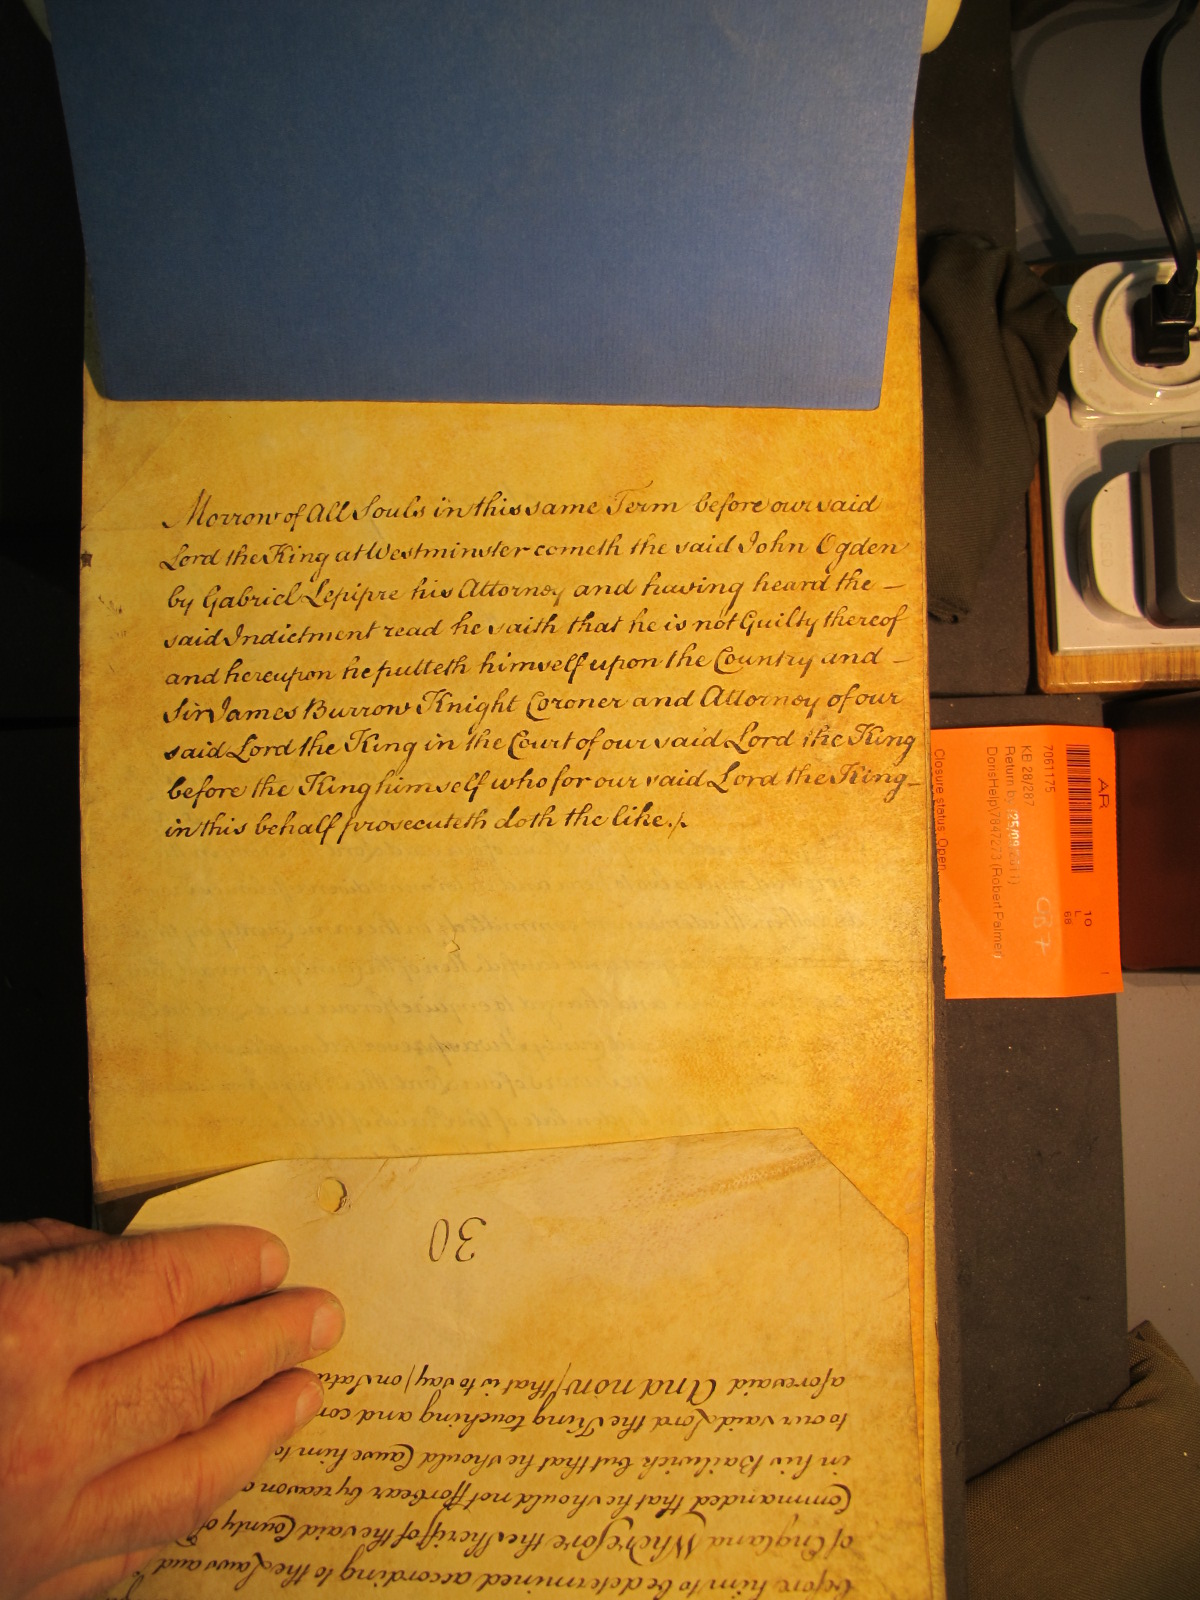 Morrow of All Souls in this same Term before our said
Lord the King at Westminster cometh the said John Ogden
by Gabriel Lepipre his Attorney and having heard the —
said Indictment read he saith that he is not Guilty thereof
and hereupon he putteth himself upon the Country and —
Sir James Burrow Knight Coroner and Attorney of our
said Lord the King in the Court of our said Lord the King
before the King himself who for our said Lord the King —
in this behalf prosecuteth doth the like./.
30
before him to be determined according to the Laws and
of England Wherefore the Sheriff of the said County of
Commanded that he should not fforbear by reason
in his Bailwick but that he should Cause him to
to our said Lord the King touching and con
aforesaid And now / that is to say / on
AR
10
L
68
7061175
KB 28/287
Return by (25/09/2011)
DorisHelp\7847273 (Robert Palmer)
Closure status: Open